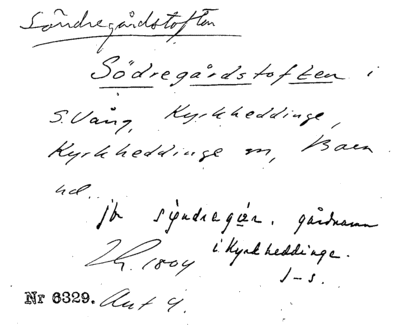 Söndregårdstoften
Södregårdstoften i
S. Vång, Kyrkheddinge,
Kyrkheddinge sn, Bara
hd.
jb søndregår. gårdnamn
i Kyrkheddinge.
1804
J-s.
Nr 6329. Ant 4.